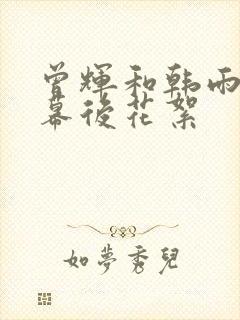 曾輝和韩雨
幕後花絮
如夢秀兒